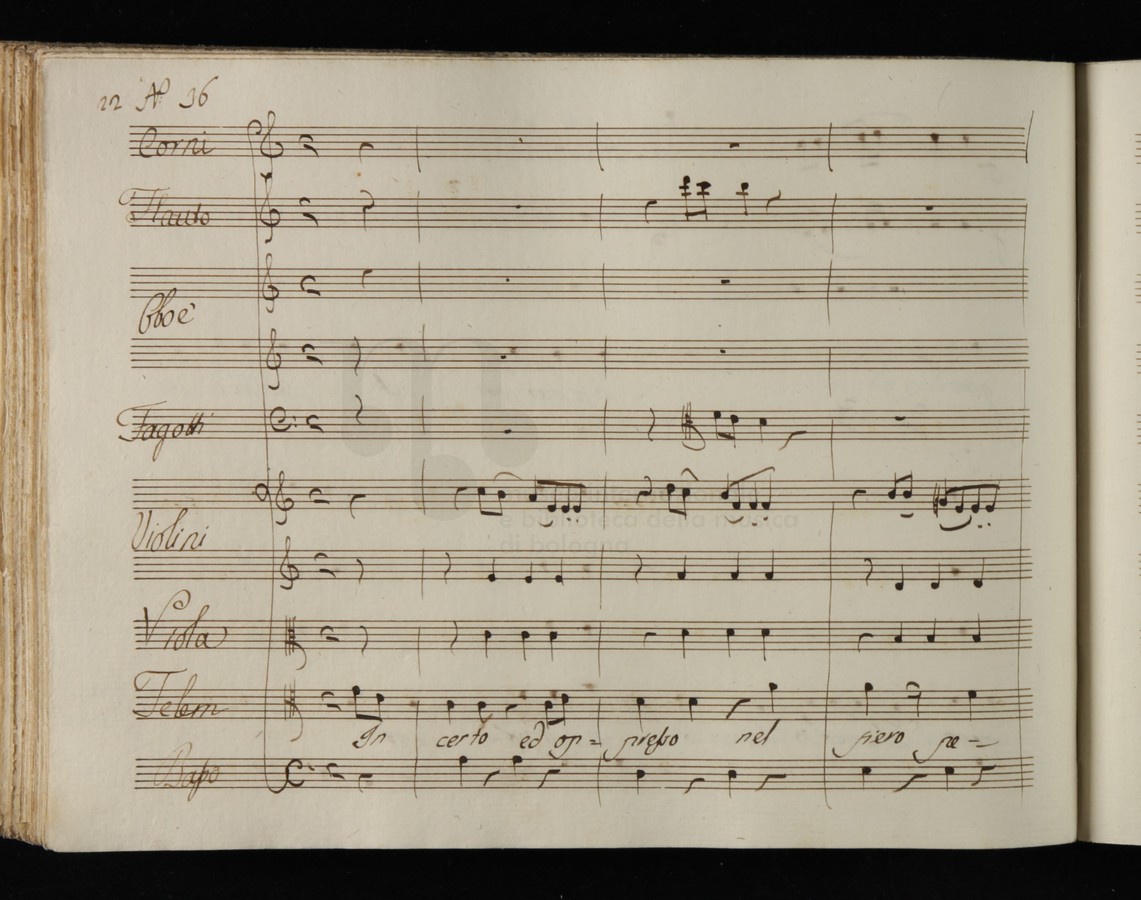 22 No 16
Corni
Flauto
Oboè
Fagotti
Violini
e biblioteca della musica
di bologna
Viola
Telem
In certo ed op= presso nel fiero pe=
Basso